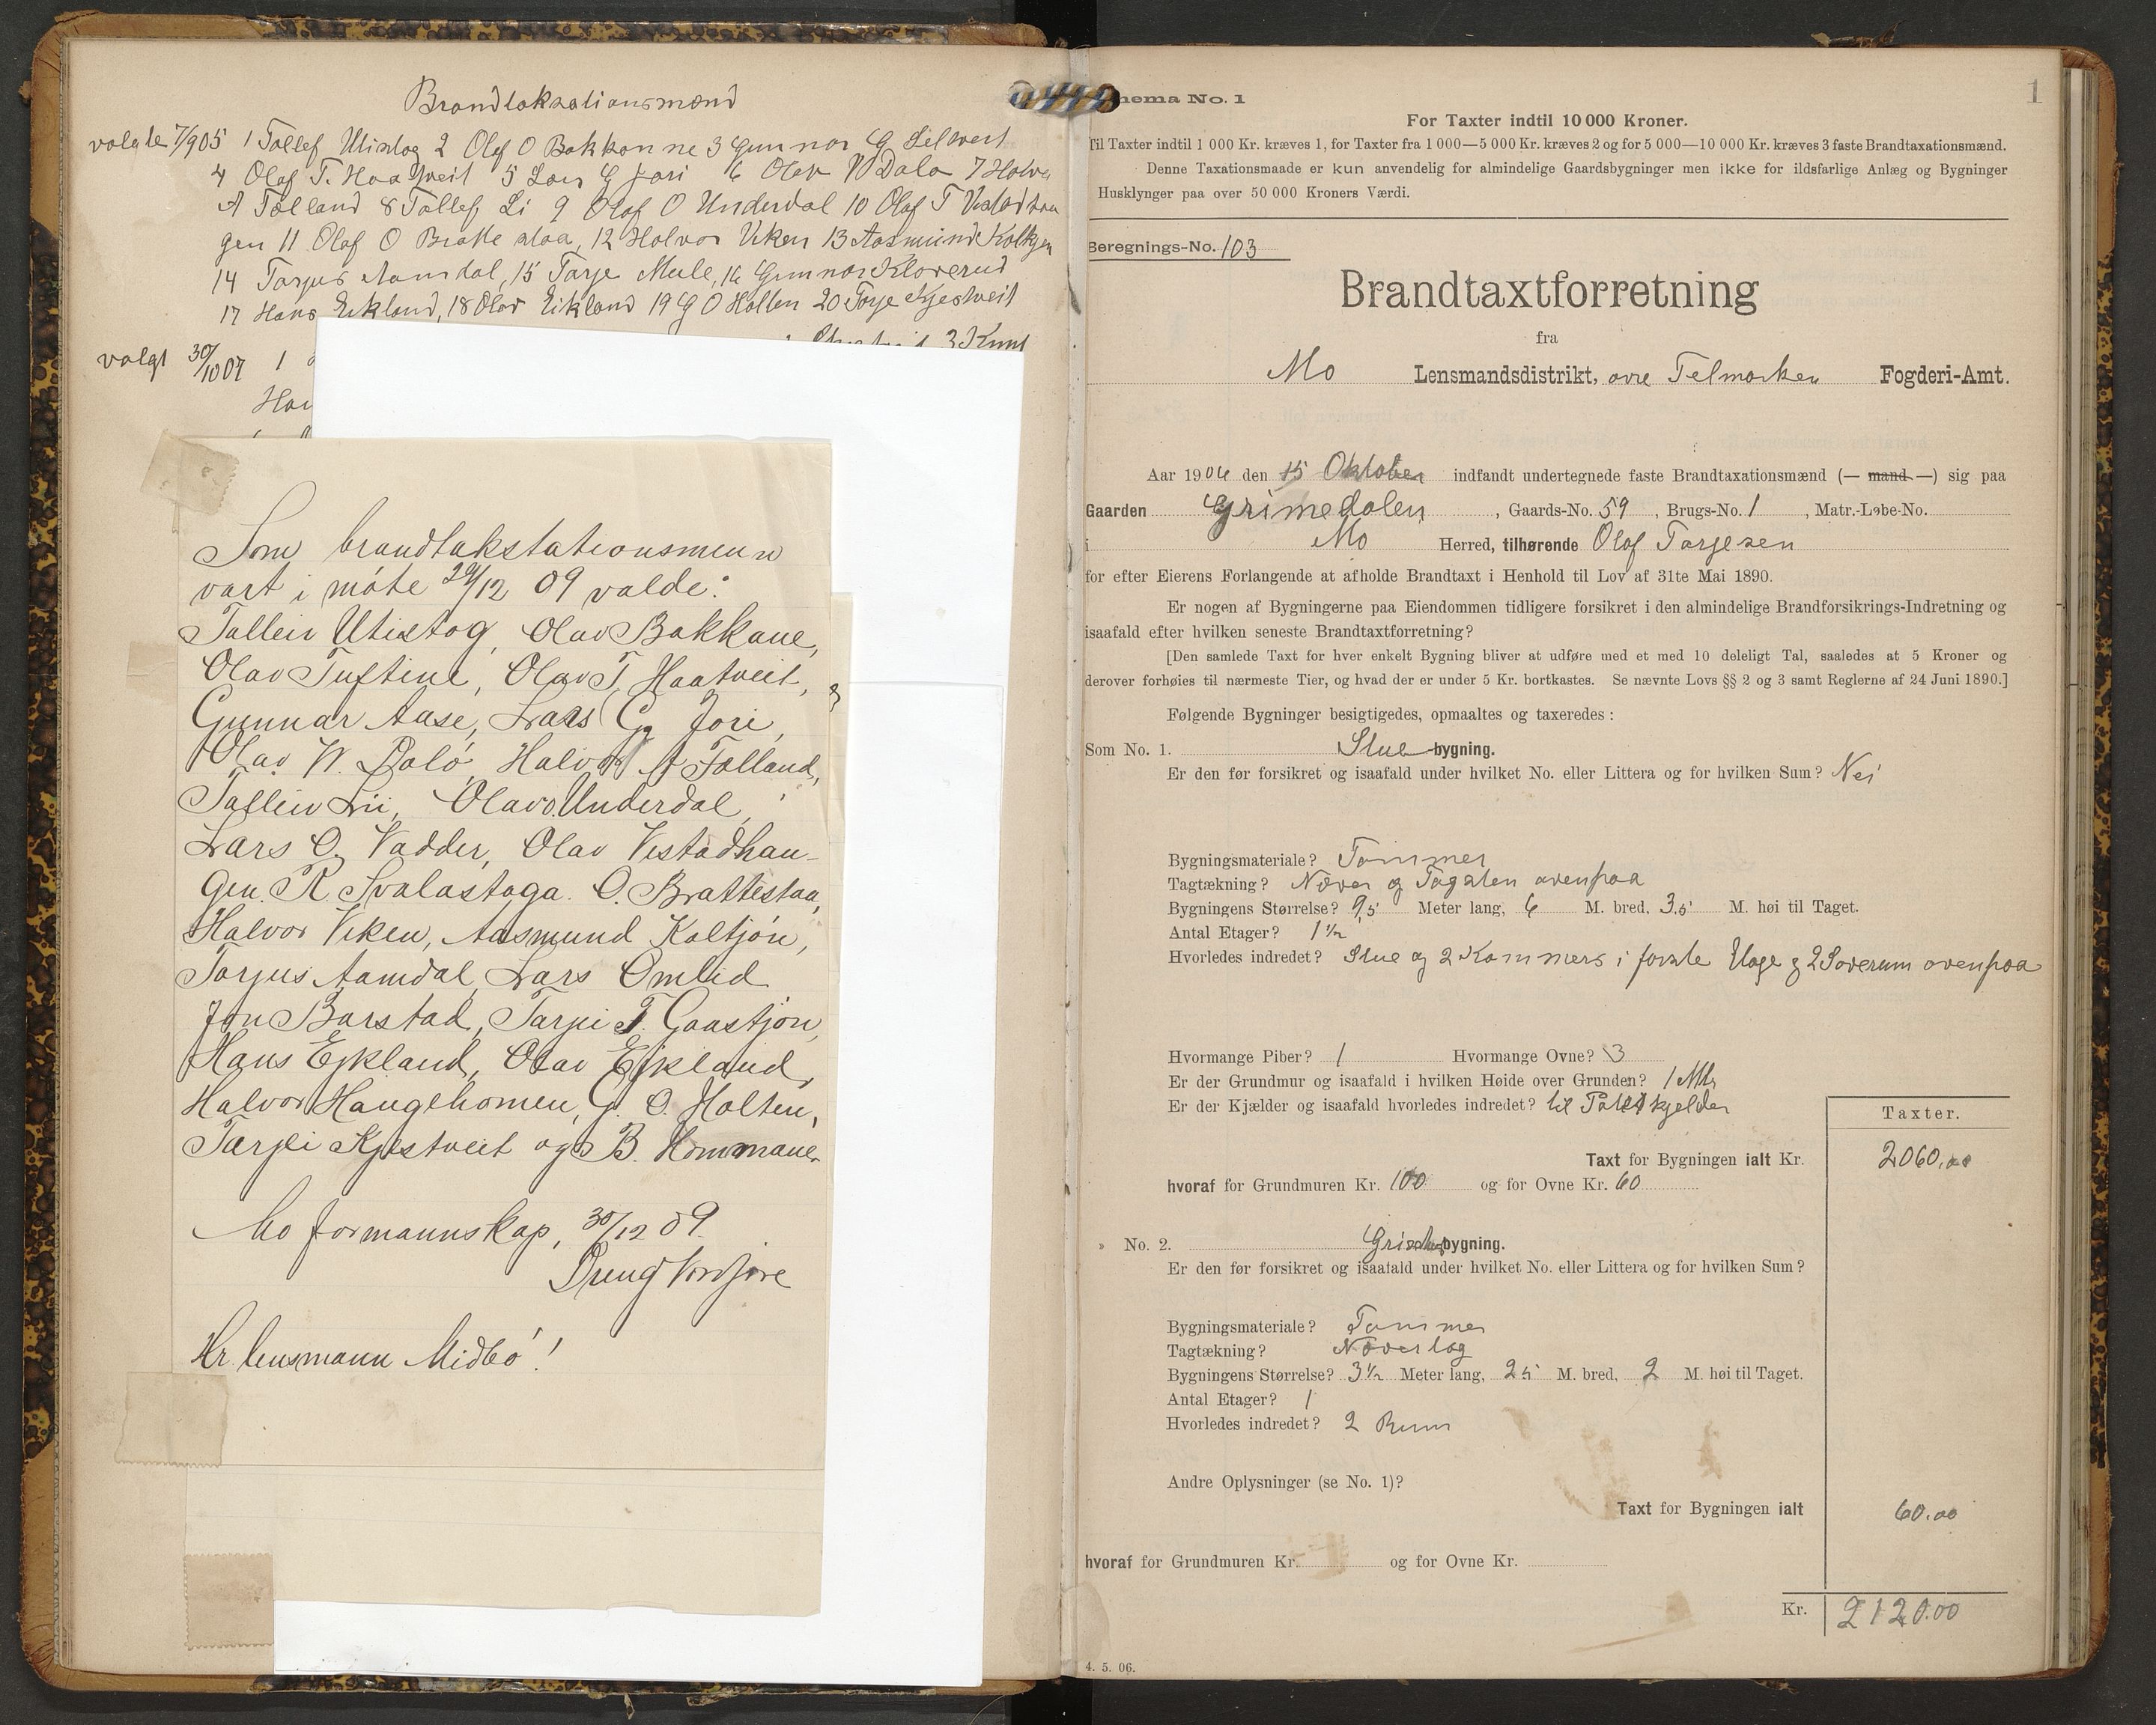 Brandtaksationsmænd
valgte 7/9 05 1 Tollef Utistog 2 Olaf O Bakkane 3 Gunnar G
4 Olaf T. Haatveit 5 Lars G Jori 6 Olav W Dalo 7 Halvor
A Følland 8 Tollef Li 9 Olaf O Underdal 10 Olaf T Vistadhau
gen 11 Olaf O Brattestaa, 12 Halvor Viken 13 Aasmund Koltjøn
14 Torjus Aamdal, 15 Tarje Mule, 16 Gunnar Kloverud
17 Hans Eikland, 18 Olav Eikland 19 G O Holten 20 Torje Kjestveit
3 Knut
valgt 30/10 07 1
Som brandtakstationsmenn
vart i møte 29/12 09 valde:
Tolleiv Utistog, Olav Bakkane,
Olav Tuftine, Olav T. Haatveit,
Gunnar Aase, Lars G. Jori,
Olav W. Daló, Halvor A Følland,
Tolleiv Lii, Olav O. Underdal,
Lars O. Vadder, Olav Vistadhau-
gen. R. Svalastoga. O. Brattestaa,
Halvor Viken, Aasmund Koltjøn,
Torjus Aamdal, Lars Omlid
Jon Barstad, Tarjei T. Gaastjøn,
Hans Ejkland, Olav Ejkland,
Halvor Haugehomen, G. O. Holten,
Tarjei Kjestveit og B. Hommane.
Mo formannskap, 30/12 09.
Hr. lensmann Midbó!
1
hema No. 1
For Taxter indtil 10 000 Kroner.
Til Taxter indtil 1 000 Kr. kræves 1, for Taxter fra 1 000—5 000 Kr. kræves 2 og for 5 000—10 000 Kr. kræves 3 faste Brandtaxationsmænd.
Denne Taxationsmaade er kun anvendelig for almindelige Gaardsbygninger men ikke for ildsfarlige Anlæg og Bygninger
Husklynger paa over 50 000 Kroners Værdi.
Beregnings-No. 103
Brandtaxtforretning
fra
Mo Lensmandsdistrikt, øvre Telmarken Fogderi-Amt.
Aar 1906 den 15 Oktober indfandt undertegnede faste Brandtaxationsmænd (— mand —) sig paa
Gaarden Grimedalen, Gaards-No. 59, Brugs-No. 1, Matr.-Løbe-No.
i Mo Herred, tilhørende Olaf Tarjesen
for efter Eierens Forlangende at afholde Brandtaxt i Henhold til Lov af 31te Mai 1890.
Er nogen af Bygningerne paa Eiendommen tidligere forsikret i den almindelige Brandforsikrings-Indretning og
isaafald efter hvilken seneste Brandtaxtforretning?
[Den samlede Taxt for hver enkelt Bygning bliver at udføre med et med 10 deleligt Tal, saaledes at 5 Kroner og
derover forhøies til nærmeste Tier, og hvad der er under 5 Kr. bortkastes. Se nævnte Lovs §§ 2 og 3 samt Reglerne af 24 Juni 1890.]
Følgende Bygninger besigtigedes, opmaaltes og taxeredes:
Som No. 1. Stuebygning.
Er den før forsikret og isaafald under hvilket No. eller Littera og for hvilken Sum? Nei
Bygningsmateriale? Tømmer
Tagtækning? Næver og Tagsten ovenpaa
Bygningens Størrelse? 9,5 Meter lang, 6 M. bred, 3,5 M. høi til Taget.
Antal Etager? 1 1/2
Hvorledes indredet? Stue og 2 Kammers i første Etage og 2 Soverum ovenpaa
Hvormange Piber? 1 Hvormange Ovne? 3
Er der Grundmur og isaafald i hvilken Høide over Grunden? 1 Mtr
Er der Kjælder og isaafald hvorledes indredet? til Potetkjelder
Taxter.
Taxt for Bygningen ialt Kr. 2060.00
hvoraf for Grundmuren Kr. 100 og for Ovne Kr. 60
» No. 2. bygning.
Er den før forsikret og isaafald under hvilket No. eller Littera og for hvilken Sum?
Bygningsmateriale? Tømmer
Tagtækning? Nævertag
Bygningens Størrelse? 3 1/2 Meter lang, 2,5 M. bred, 2 M. høi til Taget.
Antal Etager? 1
Hvorledes indredet? 2 Rum
Andre Oplysninger (se No. 1)?
Taxt for Bygningen ialt 60.00
hvoraf for Grundmuren Kr. og for Ovne Kr.
Kr. 2120.00
4. 5. 06.